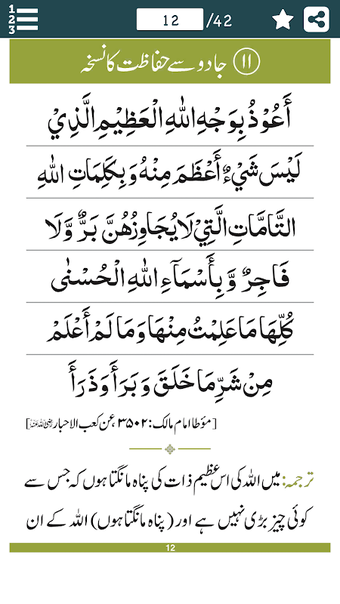 1
2
3
12 /42
۱۱ جادو سے حفاظت کا نسخہ
أَعُوْذُ بِوَجْهِ اللهِ الْعَظِيْمِ الَّذِيْ
لَيْسَ شَيْءٌ أَعْظَمَ مِنْهُ وَ بِكَلِمَاتِ اللهِ
التَّامَّاتِ الَّتِيْ لَا يُجَاوِزُهُنَّ بَرٌّ وَّلَا
فَاجِرٌ وَّ بِأَسْمَآءِ اللهِ الْحُسْنٰى
كُلِّهَا مَا عَلِمْتُ مِنْهَا وَمَا لَمْ أَعْلَمْ
مِنْ شَرِّ مَا خَلَقَ وَ بَرَأَ وَ ذَرَأَ
[مؤطا امام مالک: ۳۵۰۲، عن کعب الاحبار]
ترجمہ: میں اللہ کی اس عظیم ذات کی پناہ مانگتا ہوں کہ جس سے
کوئی چیز بڑی نہیں ہے اور (پناہ مانگتا ہوں) اللہ کے ان
12